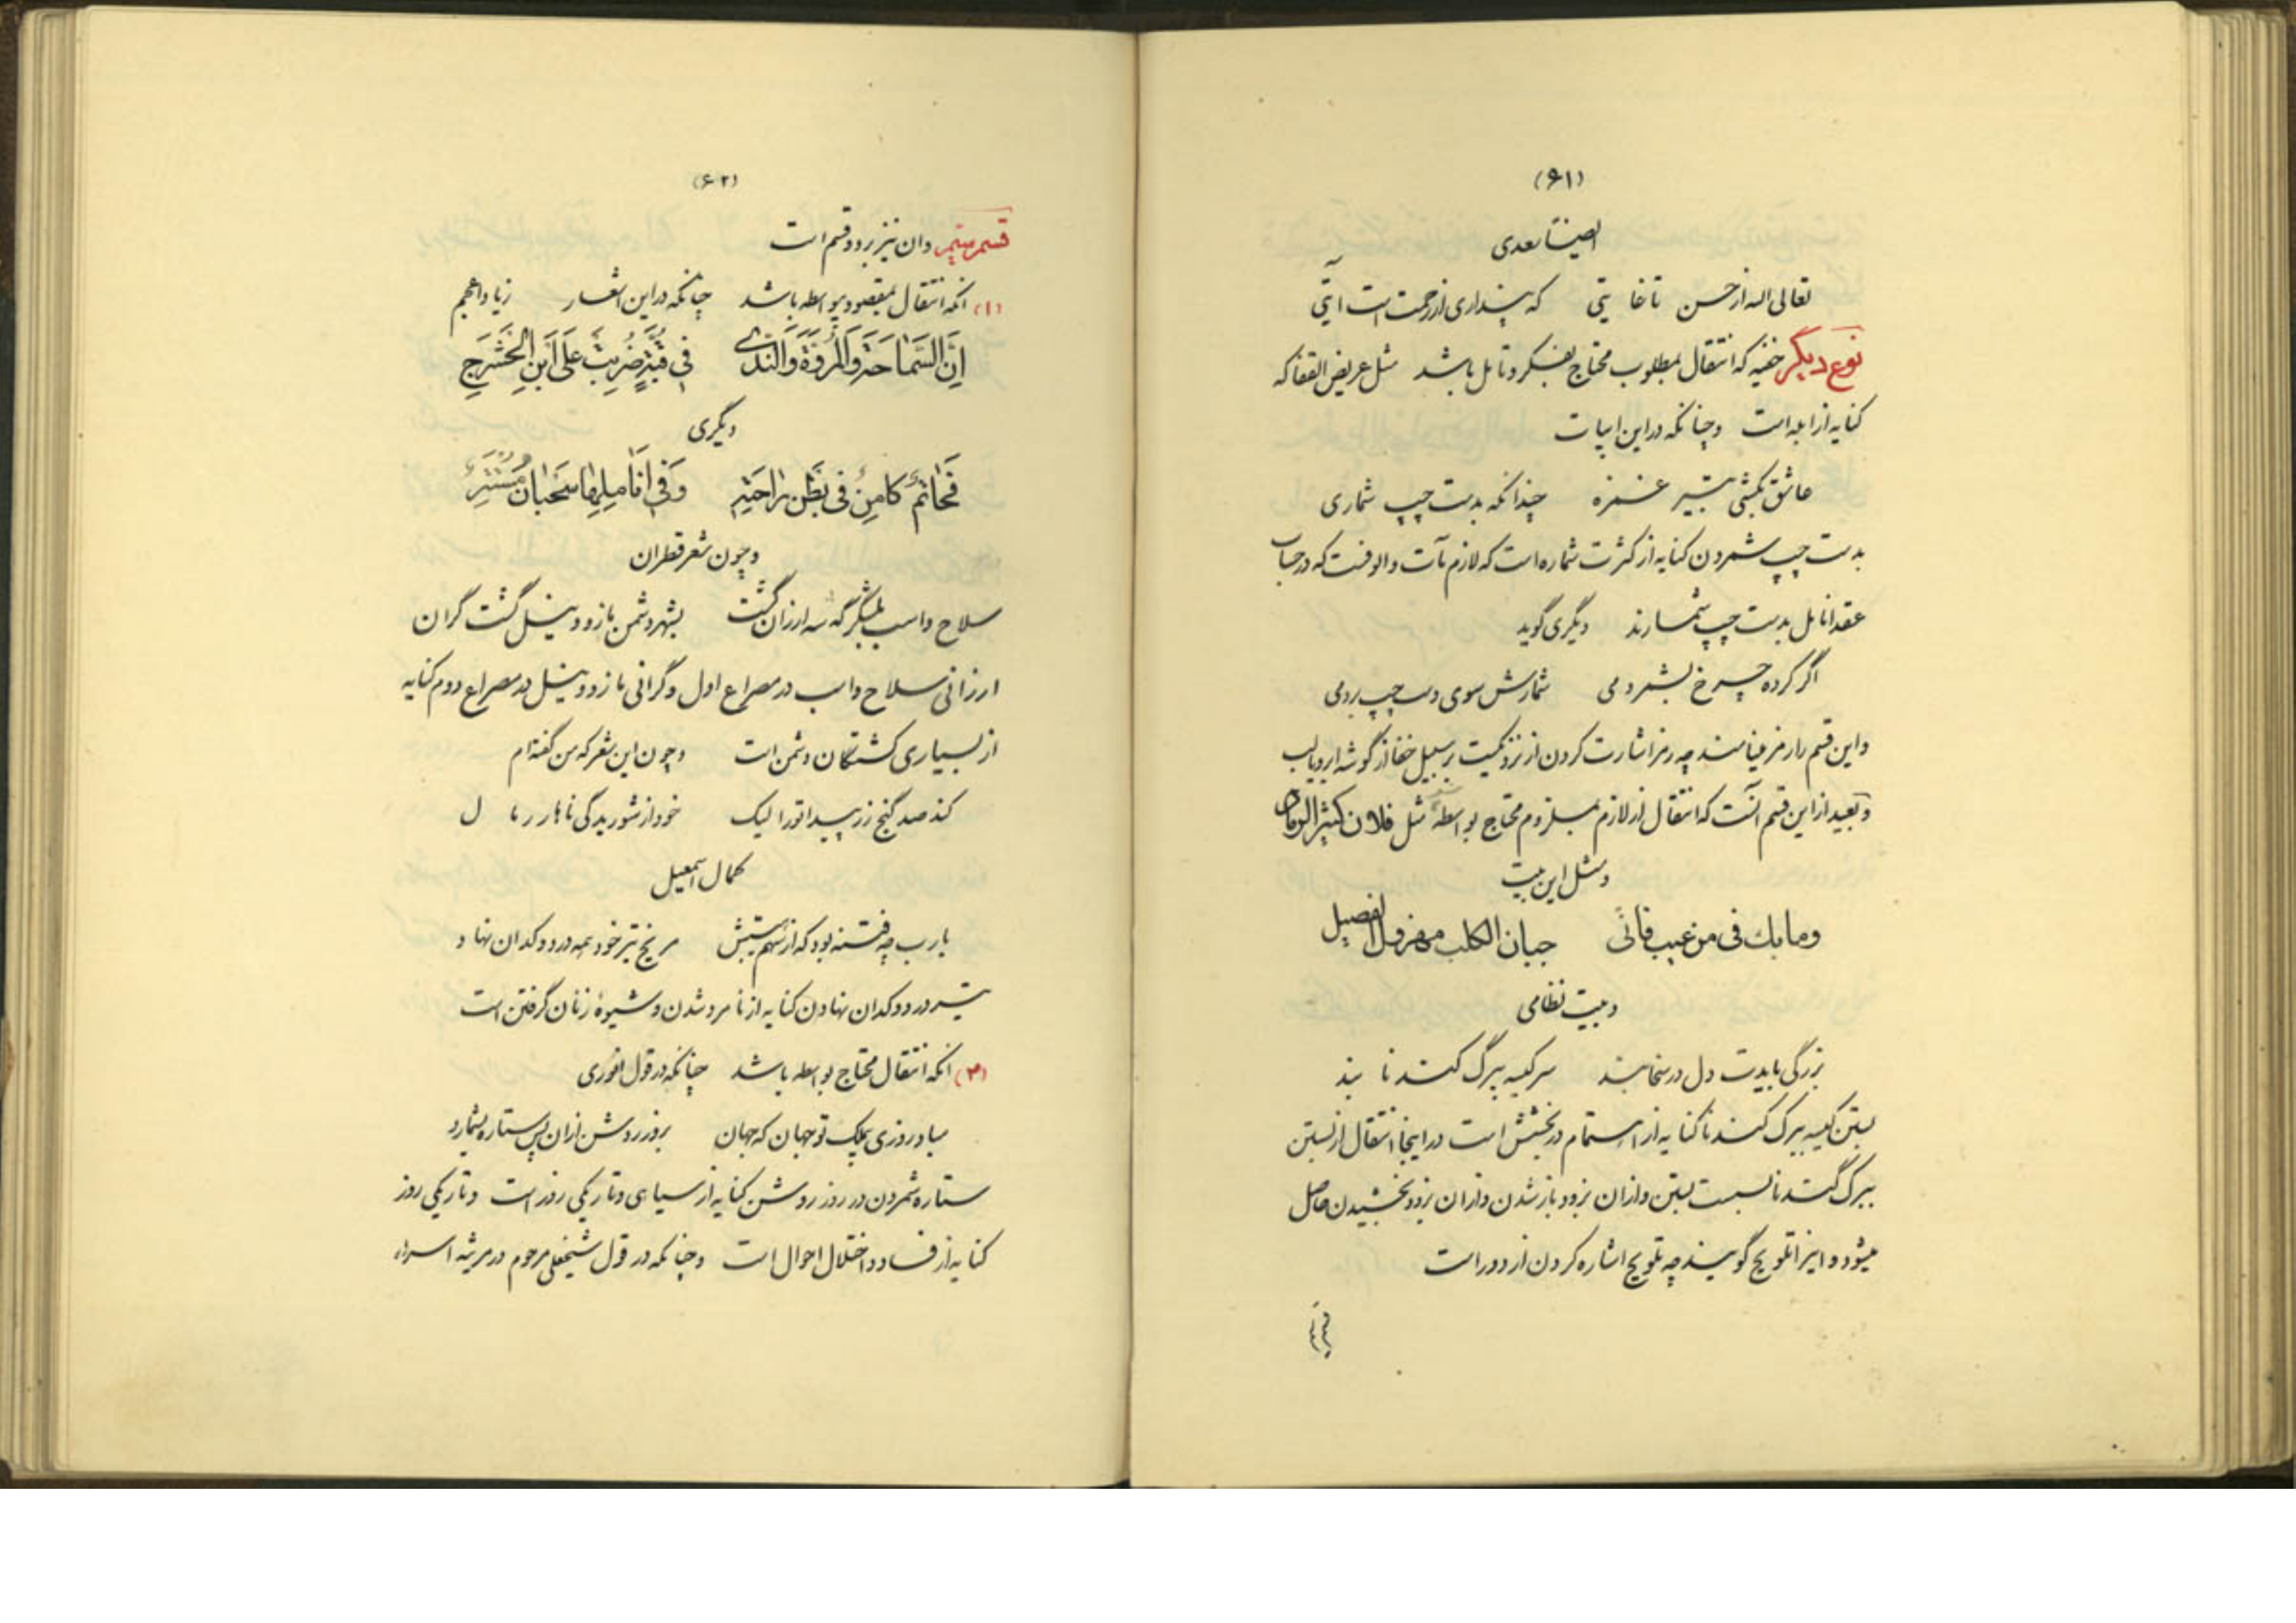 (۶۱)
ایضا سعدی
تعالی اله از حسن تا غایتی که پنداری از رحمت است آیتی
نوع دیگر خفیه که انتقال بمطلوب محتاج بفکر و تامل باشد مثل عریض القفا که
کنایه از ابله است و چنانکه در این ابیات
عاشق بکشی بتیر غمزه چندانکه بدست چپ شماری
بدست چپ شمردن کنایه از کثرت شماره است که لازم مآت و الوفست که در حساب
عقد انامل بدست چپ شمارند دیگری گوید
اگر کرده چرخ بشمردمی شمارش سوی دست چپ بردمی
و این قسم را رمز مینامند چه رمز اشارت کردن از نزدیکیست بر سبیل خفا از گوشه ابرو یا لب
و بعید از این قسم آنست که انتقال از لازم بملزوم محتاج بواسطه مثل فلان کثیر الرماد
و مثل این بیت
وما یك فی من عیب فانی جبان الکلب مهزول الفصیل
و بیت نظامی
بزرگی بایدت دل در سخا بند سر کیسه ببرگ گندنا بند
بستن کیسه ببرگ گندنا کنایه از اهتمام در بخشش است در اینجا انتقال از بستن
ببرگ گندنا بسست بستن و از ان بزود باز شدن و از ان بزود بخشیدن حاصل
میشود و اینرا تلویح گویند چه تلویح اشاره کردن از دور است
(۶۲)
قسم سیم و ان نیز بر دو قسم است
(۱) انکه انتقال بمقصود بیواسطه باشد چنانکه در این اشعار زیاد اعجم
اِنَّ السَّمٰاحَةَ وَالْمُرُوَّةَ وَالنَّدٰی فی قُبَّةٍ ضُرِبَتْ عَلَی ابْنِ الْحَشْرَجِ
دیگری
فَحٰاتَمٌ کامِنٌ فی بَطْنِ رٰاحَتِهِ وَفی اَنٰامِلِهٰا سَحْبٰانُ مُسْتَتِرٌ
و چون شعر قطران
سلاح و اسب بلشگرگه سه ارزان گشت بشهر دشمن بازو و نیل گشت گران
ارزانی سلاح و اسب در مصراع اول و گرانی بازو و نیل در مصراع دوم کنایه
از بسیاری کشتگان دشمن است و چون این شعر که من گفته ام
کند صد گنج زر پیدا تو را لیک خود از شوریدگی ناهار
کمال اسمعیل
یا رب چه فتنه بود که از سهم هیبتش مریخ تیر خود همه در دوکدان نهاد
تیر در دوکدان نهادن کنایه از نامرد شدن و شیوهٔ زنان گرفتن است
(۲) انکه انتقال محتاج بواسطه باشد چنانکه در قول انوری
مباد روزی بملک تو جهان که جهان بروز روشن از ان پس ستاره بشمارد
ستاره شمردن در روز روشن کنایه از سیاهی و تاریکی روز است و تاریکی روز
کنایه از فساد و اختلال احوال است و چنانکه در قول شیخعلی مرحوم در مرثیه اسراء